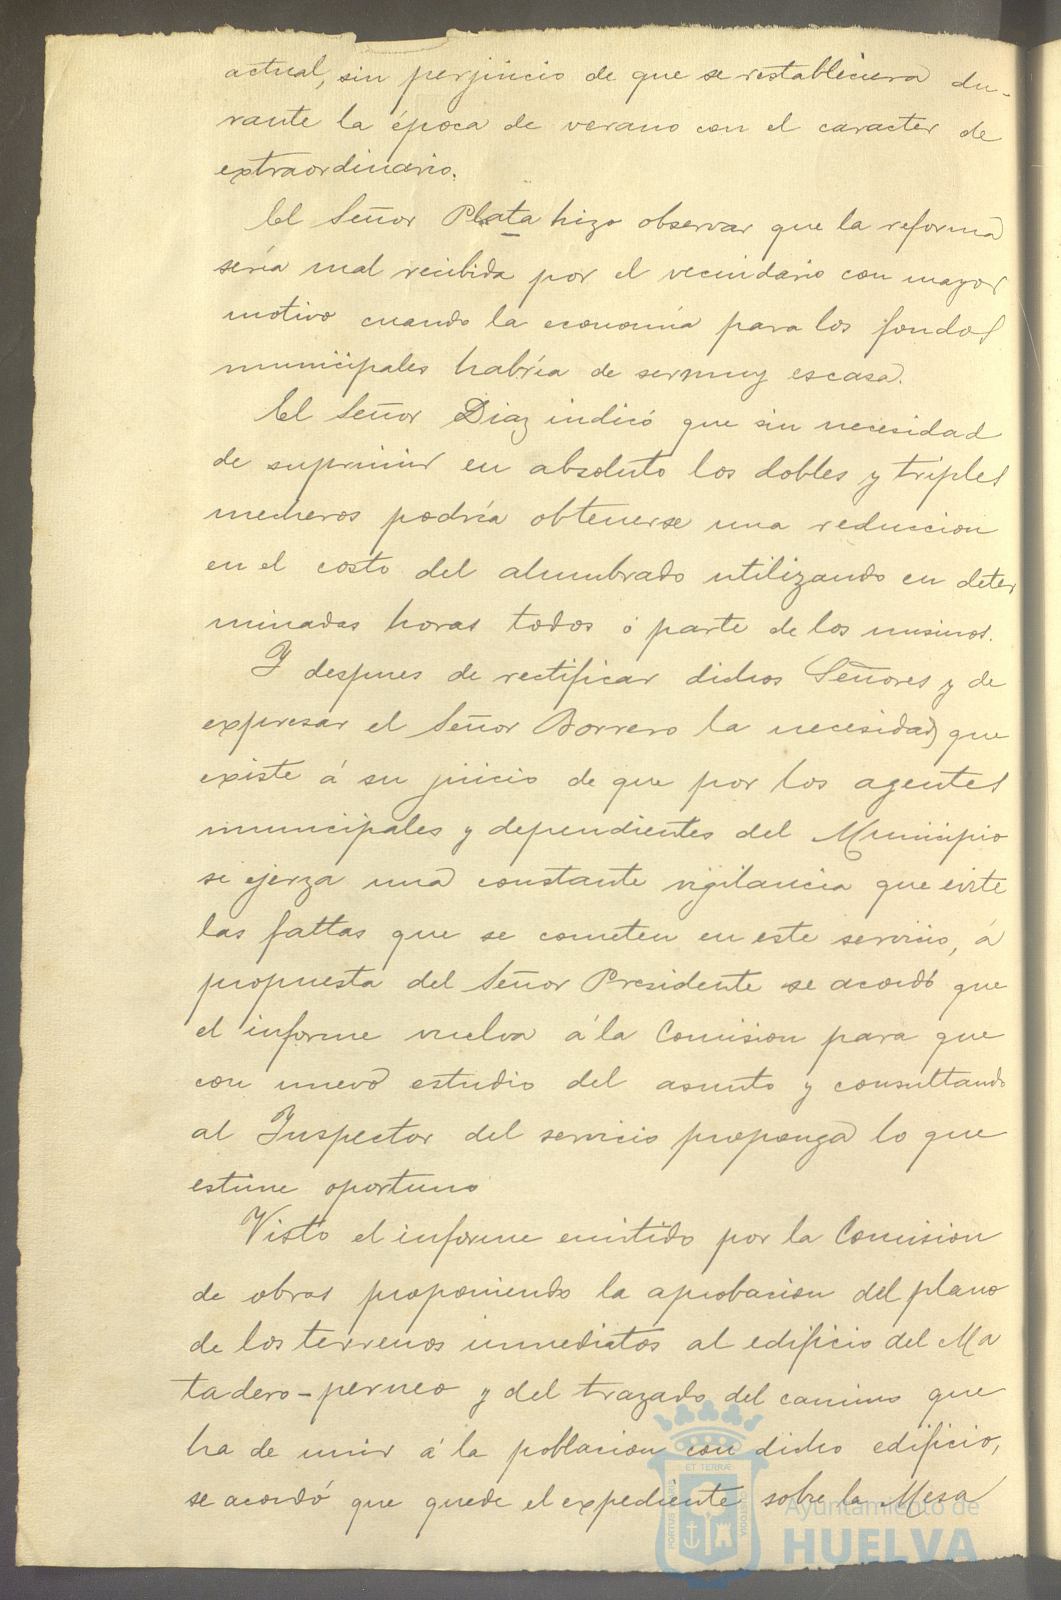 actual, sin perjuicio de que se restableciera du-
rante la época de verano con el caracter de
extraordinario.
El Señor Plata hizo observar que la reforma
sería mal recibida por el vecindario con mayor
motivo cuando la economía para los fondos
municipales habría de ser muy escasa.
El Señor Diaz indicó que sin necesidad
de suprimir en absoluto los dobles y triples
mecheros podría obtenerse una reduccion
en el costo del alumbrado utilizando en deter
minadas horas todos ó parte de los mismos.
Y despues de rectificar dichos Señores y de
expresar el Señor Borrero la necesidad que
existe á su juicio de que por los agentes
municipales y dependientes del Municipio
se ejerza una constante vigilancia que evite
las faltas que se cometen en este servicio, á
propuesta del Señor Presidente se acordó que
el informe vuelva á la Comision para que
con nuevo estudio del asunto y consultando
al Inspector del servicio proponga lo que
estime oportuno
Visto el informe emitido por la Comision
de obras proponiendo la aprobacion del plano
de los terrenos inmediatos al edificio del Ma
tadero-perneo y del trazado del camino que
ha de unir á la poblacion con dicho edificio,
se acordó que quede el expediente sobre la Mesa
PORTUS MARIS ET TERRÆ CUSTODIA
Ayuntamiento de
HUELVA